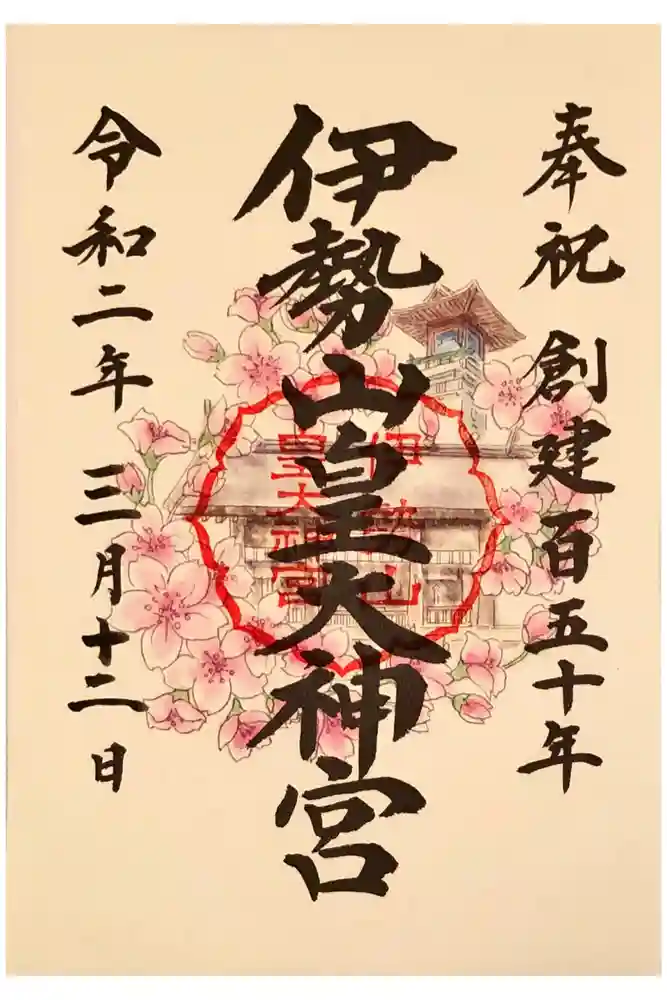 奉祝 創建百五十年
伊勢山皇大神宮
伊勢山
皇大神宮
令和二年 三月十二日